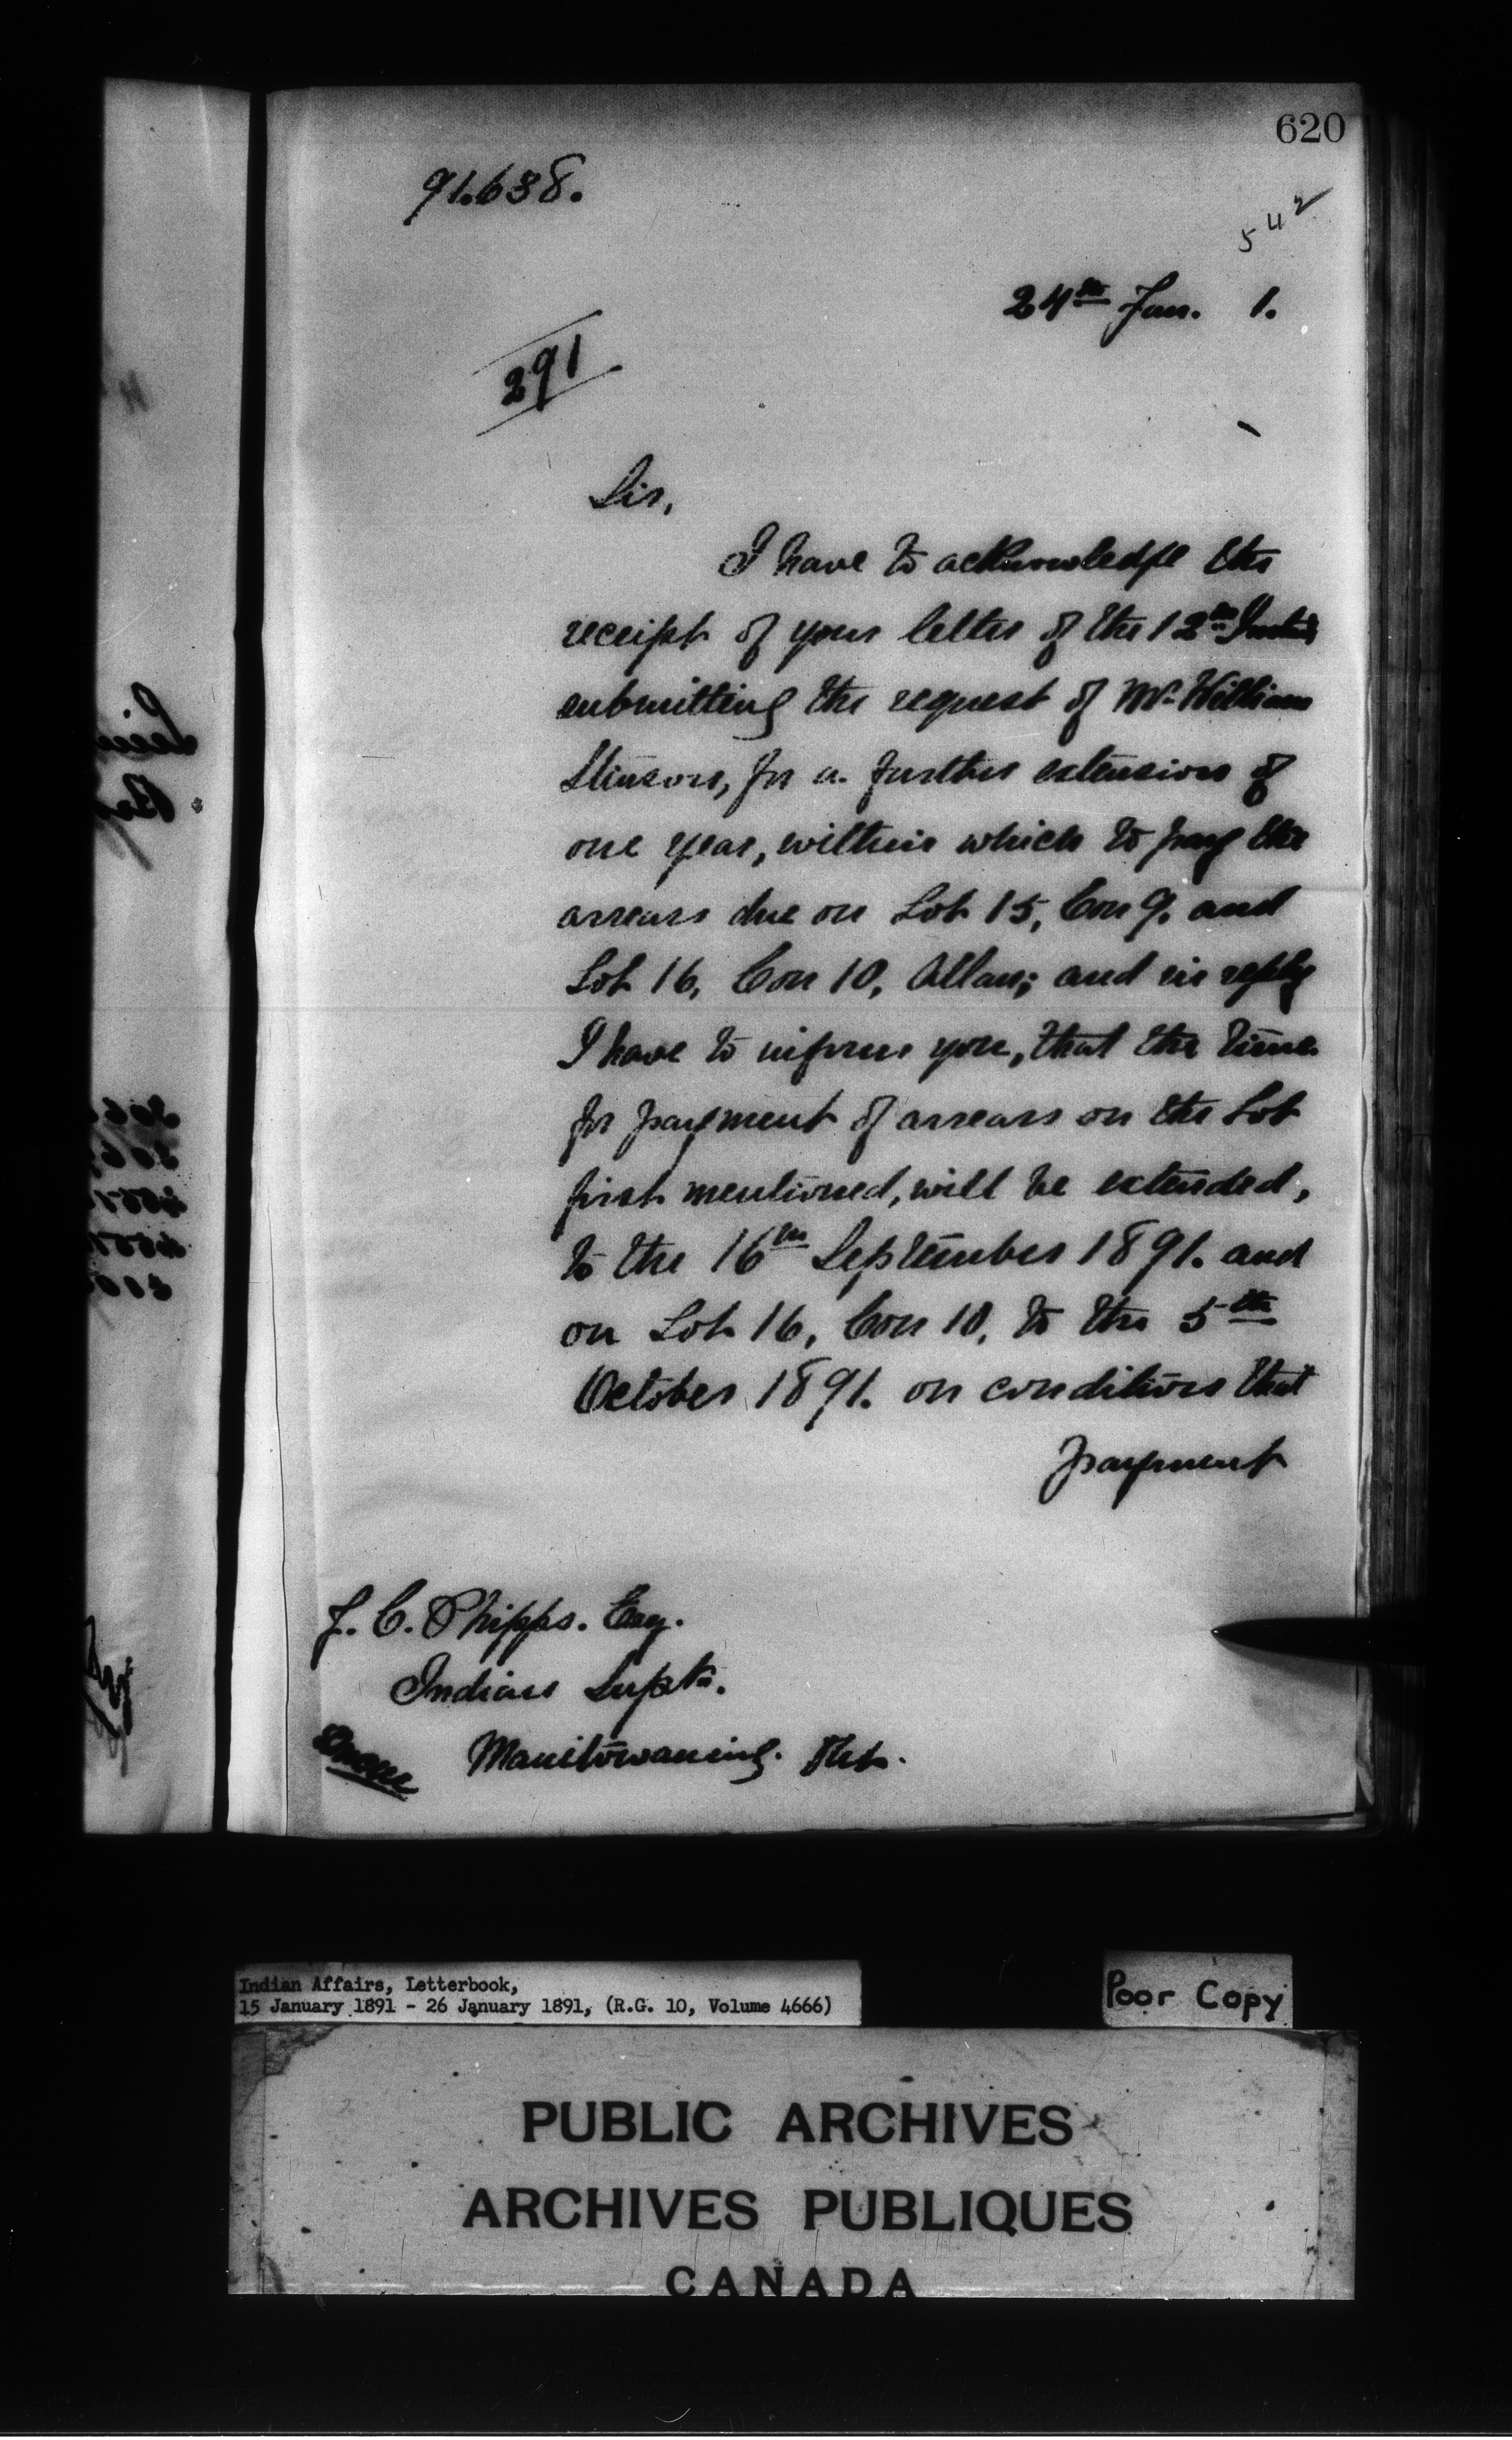 620
91.638.
542
24th Jan. 1.
291
Sir,
I have to acknowledge the
receipt of your letter of the 12th Instant
submitting the request of Mr. William
Stinson, for a further extension of
one year, within which to pay the
arrears due on Lot 15, Con 9. and
Lot 16, Con 10, Allan; and in reply
I have to inform you, that the time
for payment of arrears on the Lot
first mentioned, will be extended,
to the 16th September 1891. and
on Lot 16, Con 10, to the 5th
October 1891. on condition that
payment
J. C. Phipps. Esq.
Indian Supt.
Manitowaning. Ont.
Indian Affairs, Letterbook,
15 January 1891 - 26 January 1891, (R.G. 10, Volume 4666)
Poor Copy
PUBLIC ARCHIVES
ARCHIVES PUBLIQUES
CANADA